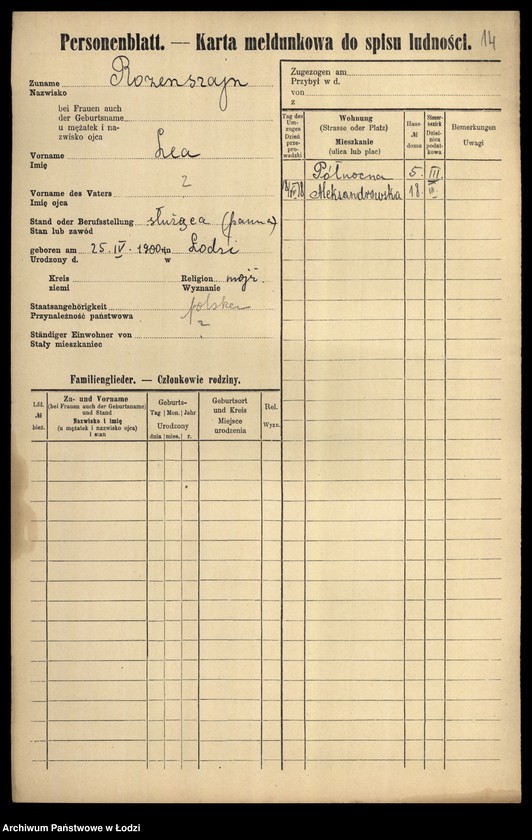 Personenblatt. — Karta meldunkowa do spisu ludności. 14
Zuname Rozenszajn
Nazwisko
bei Frauen auch
der Geburtsname
u mężatek i na-
zwisko ojca
Vorname Lea
Imię
Vorname des Vaters ?
Imię ojca
Stand oder Berufsstellung służąca (panna)
Stan lub zawód
geboren am 25. IV. 1900 in Łodzi
Urodzony d. w
Kreis Religion mojż.
ziemi Wyznanie
Staatsangehörigkeit polska
Przynależność państwowa ?
Ständiger Einwohner von
Stały mieszkaniec
Familienglieder. — Członkowie rodziny.
Lfd. № bież.
Zu- und Vorname
(bei Frauen auch der Geburtsname)
und Stand
Nazwisko i imię
(u mężatek i nazwisko ojca)
i stan
Geburts-
Tag | Mon. | Jahr
Urodzony
dnia | mies. | r.
Geburtsort
und Kreis
Miejsce
urodzenia
Rel.
Wyzn.
Zugezogen am
Przybył w d.
von
z
Tag des
Um-
zuges
Dzień
prze-
pro-
wadzki
Wohnung
(Strasse oder Platz)
Mieszkanie
(ulica lub plac)
Haus-
№
domu
Steuer-
bezirk
Dziel-
nica
podat-
kowa
Bemerkungen
Uwagi
Północna 5. III.
Aleksandrowska 18.
Archiwum Państwowe w Łodzi